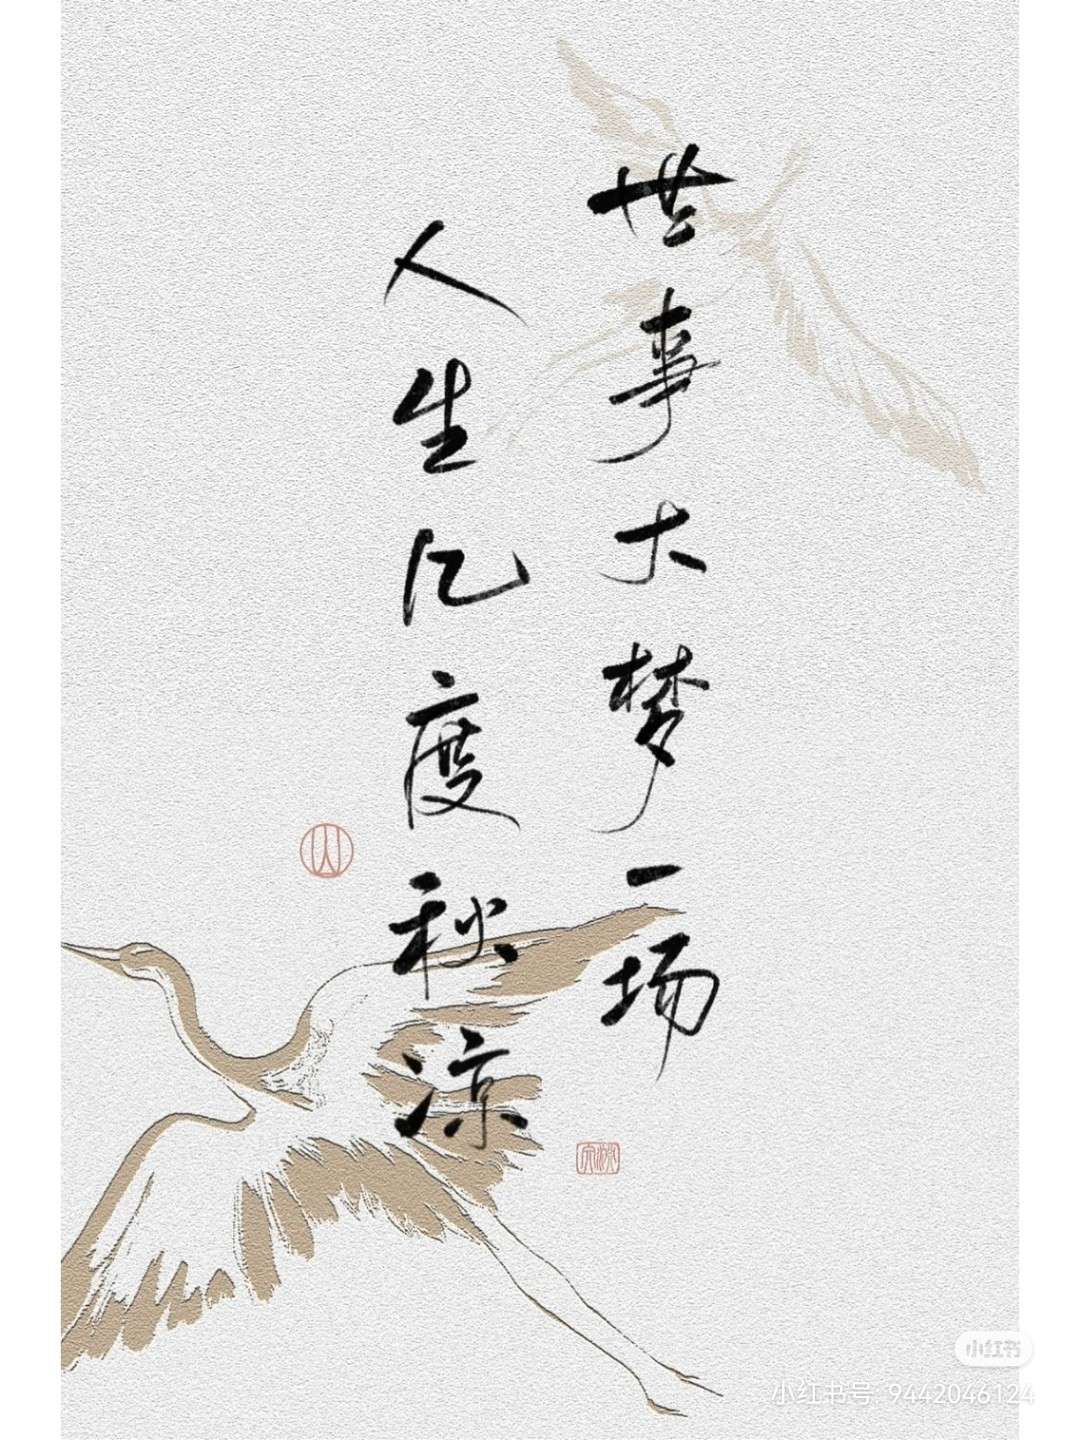 世事大梦一场
人生亿度秋凉
小红书
小红书号 9442046124